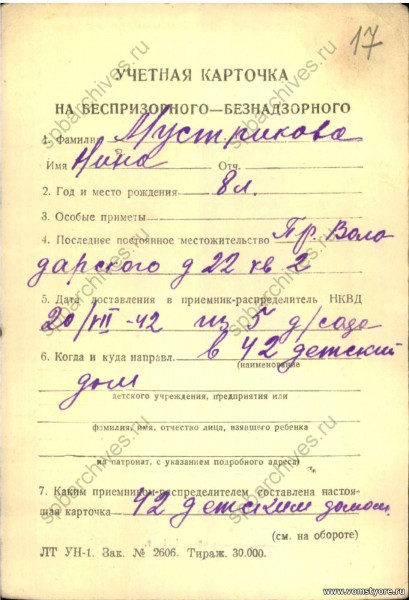 17
УЧЕТНАЯ КАРТОЧКА
НА БЕСПРИЗОРНОГО—БЕЗНАДЗОРНОГО
1. Фамилия Мустрикова
Имя Нина Отч.
2. Год и место рождения 8 л.
3. Особые приметы
4. Последнее постоянное местожительство Пр. Воло
дарского д 22 кв 2
5. Дата доставления в приемник-распределитель НКВД
20/VII-42 из 5 д/сада
6. Когда и куда направл. в 42 детский
(наименование
дом
детского учреждения, предприятия или
фамилия, имя, отчество лица, взявшего ребенка
на патронат, с указанием подробного адреса)
7. Каким приемником-распределителем составлена настоя-
щая карточка 42 детским домом
(см. на обороте)
ЛТ УН-1. Зак. № 2606. Тираж. 30.000.
spbarchives.ru
www.vomstyore.ru